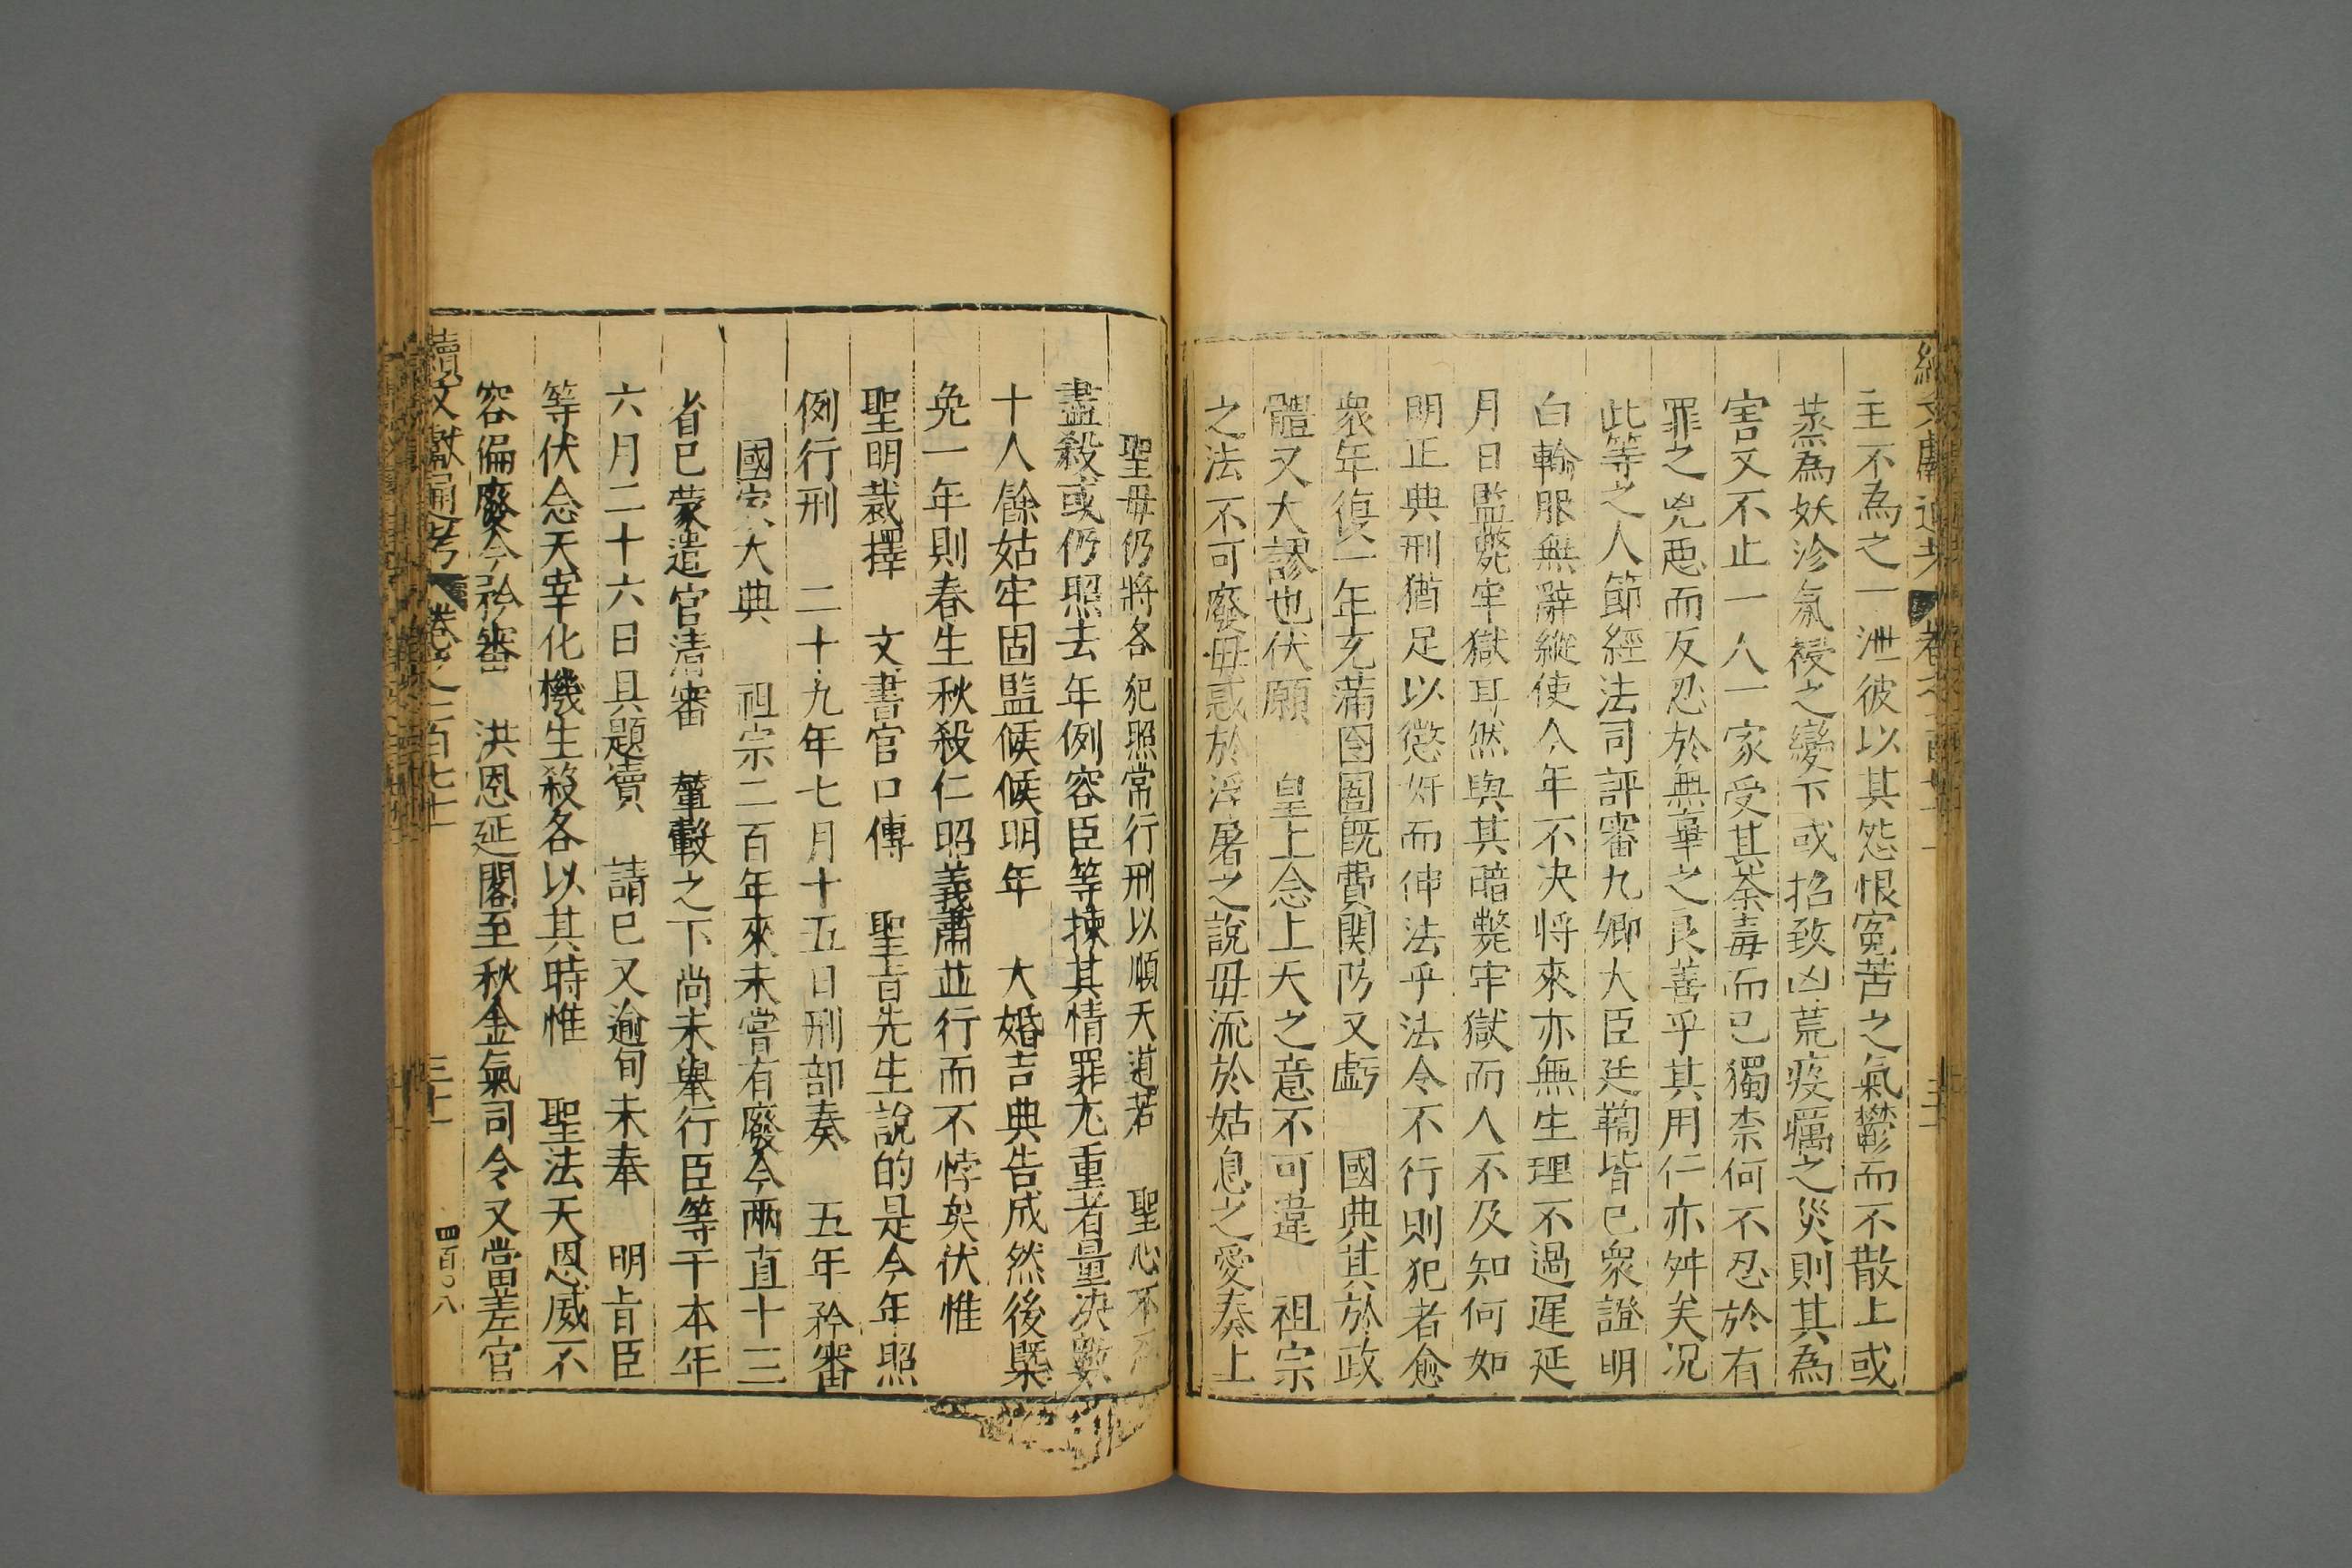 主不為之一泄彼以其怨恨冤苦之氣鬱而不散上或
蒸為妖沴氣祲之變下或招致凶荒疫癘之災則其為
害又不止一人一家受其荼毒而已獨柰何不忍於有
罪之兇惡而反忍於無辜之良善乎其用仁亦舛矣况
此等之人節經法司評審九卿大臣廷鞫皆已衆證明
白輸服無辭縱使今年不决将來亦無生理不過遲延
月日監斃牢獄耳然與其暗斃牢獄而人不及知何如
明正典刑猶足以懲奸而伸法乎法令不行則犯者愈
衆年復一年充滿囹圄既費関防又虧　國典其於政
體又大謬也伏願　皇上念上天之意不可違　祖宗
之法不可廢毋惑於浮屠之說毋流於姑息之愛奏上
聖毋仍將各犯照常行刑以順天道若　聖心不
盡殺或仍照去年例容臣等揀其情罪尤重者量決數
十人餘姑牢固監候候明年　大婚吉典告成然後槩
免一年則春生秋殺仁昭義肅並行而不悖矣伏惟
聖明裁擇　文書官口傳　聖旨先生說的是今年照
例行刑　二十九年七月十五日刑部奏　五年矜審
國家大典　祖宗二百年來未嘗有廢今兩直十三
省已蒙遣官清審　輦轂之下尚未舉行臣等于本年
六月二十六日具題瀆　請已又逾旬未奉　明旨臣
等伏念天宰化機生殺各以其時惟　聖法天恩威不
容偏廢今矜審　洪恩延閣至秋金氣司令又當差官
續文獻通考　卷之一百七十一　三十一　四百〇八